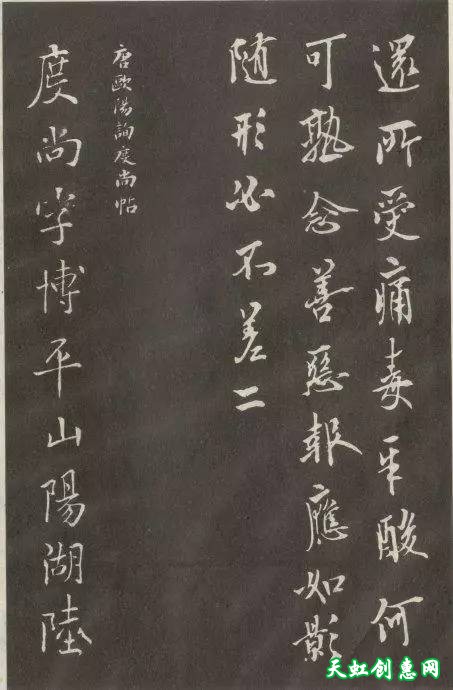 還所受痛毒辛酸何
可熟念善惡報應如影
随形必不差二
唐歐陽詢度尚帖
度尚字博平山陽湖陸
天虹创惠网